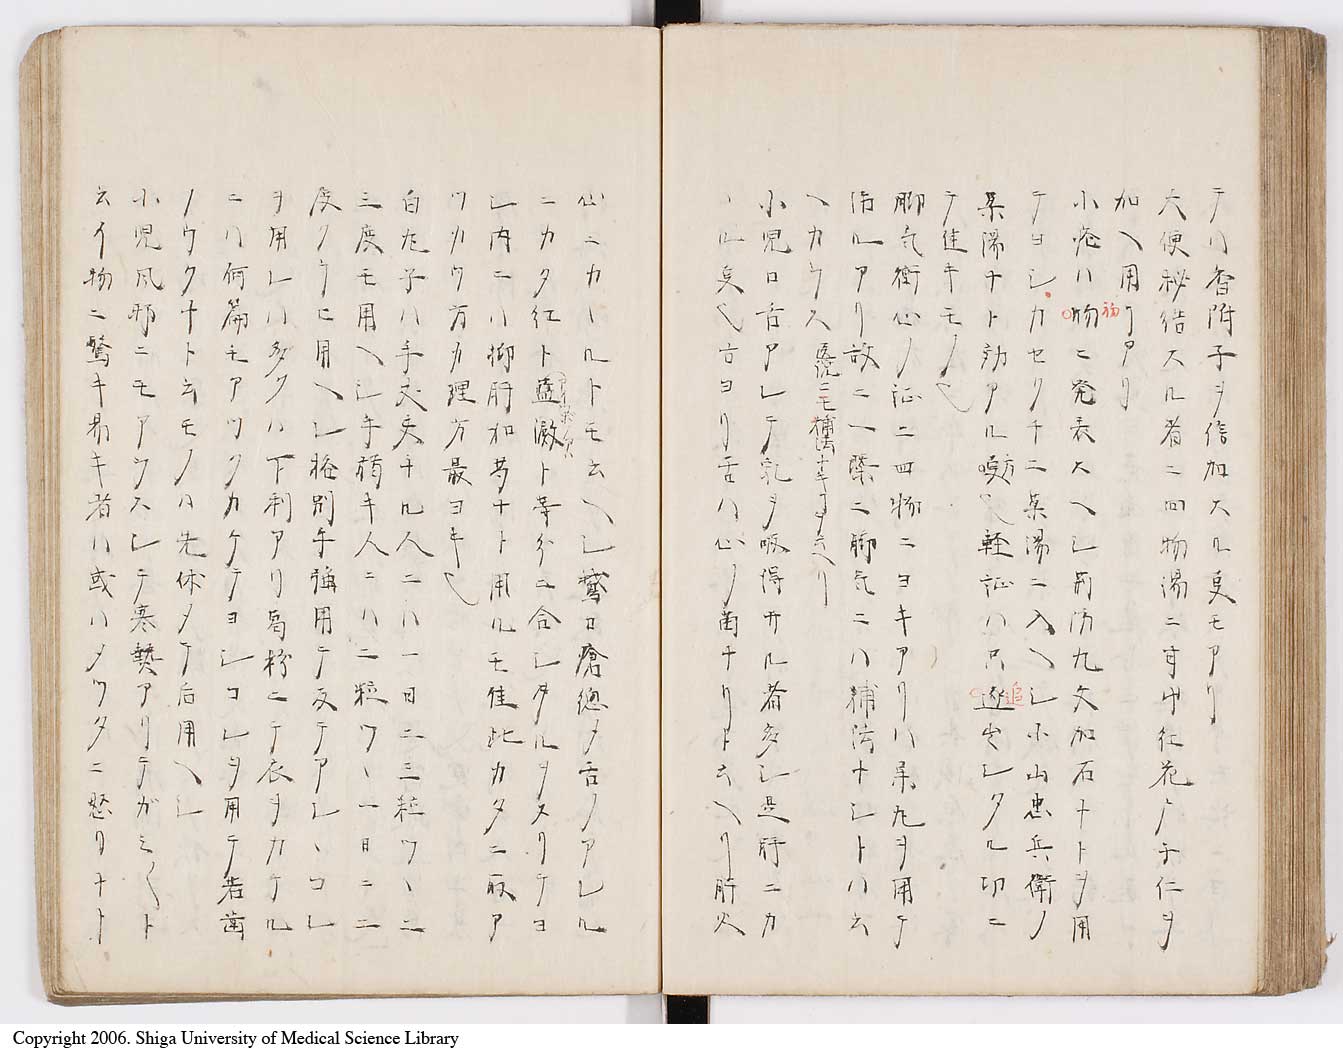 テハ香附子ヲ倍加スル叓モアリ
大便秘結スル者ニ四物湯ニ牛紅花子仁ヲ
加ヘ用リアリ
小瘡ハ物ニ発表スヘシ荊防九文加石ナトヲ用
初
テヨシカセクチニ薬湯ニ入ヘシ小山忠兵衛ノ
薬湯ナト効アル方也軽証ハ只逐出シタル功ニ
追
テ佳キモノ也
脚気衝心ノ証ニ四物ニヨキアリハ屎丸ヲ用テ
治ルアリ故ニ一際ニ脚気ニハ補法ナシトハ云
ヘカラス
医徳ニモ補法ナキコヲ云ヘリ
小児口舌アレテ乳ヲ吸得サル者多シ是肝ニカ
ヽル叓也古ヨリ舌ハ心ノ苗ナリト云ヘリ肝火
心ニカヽルトモ云ヘシ鵞口瘡總メ舌ノアレル
ニカタ紅ト藍澱ト等分ニ合シタルヲヌリテヨ
シ内ニハ抑肝加芍ナト用ルモ佳此カタニ取ア
ツカウ方カ理方最ヨキ也
白丸子ハ手丈夫ナル人ニハ一日ニ三粒ツヽ三
三度モ用ヘシ手弱キ人ニハ二粒ツヽ一日ニ二
度クラヒ用ヘシ格別手強用テ反テアシヽコレ
ヲ用レハ多クハ下利アリ葛粉ニテ衣ヲカケル
ニハ何篇モアツクカケテヨシコレヲ用テ若歯
ノウクナト云モノハ先休メテ后用ヘシ
小児風邪ニモアラスシテ寒熱アリテガミ〳〵ト
云イ物ニ驚キ易キ者ハ或ハメツタニ怒リナト